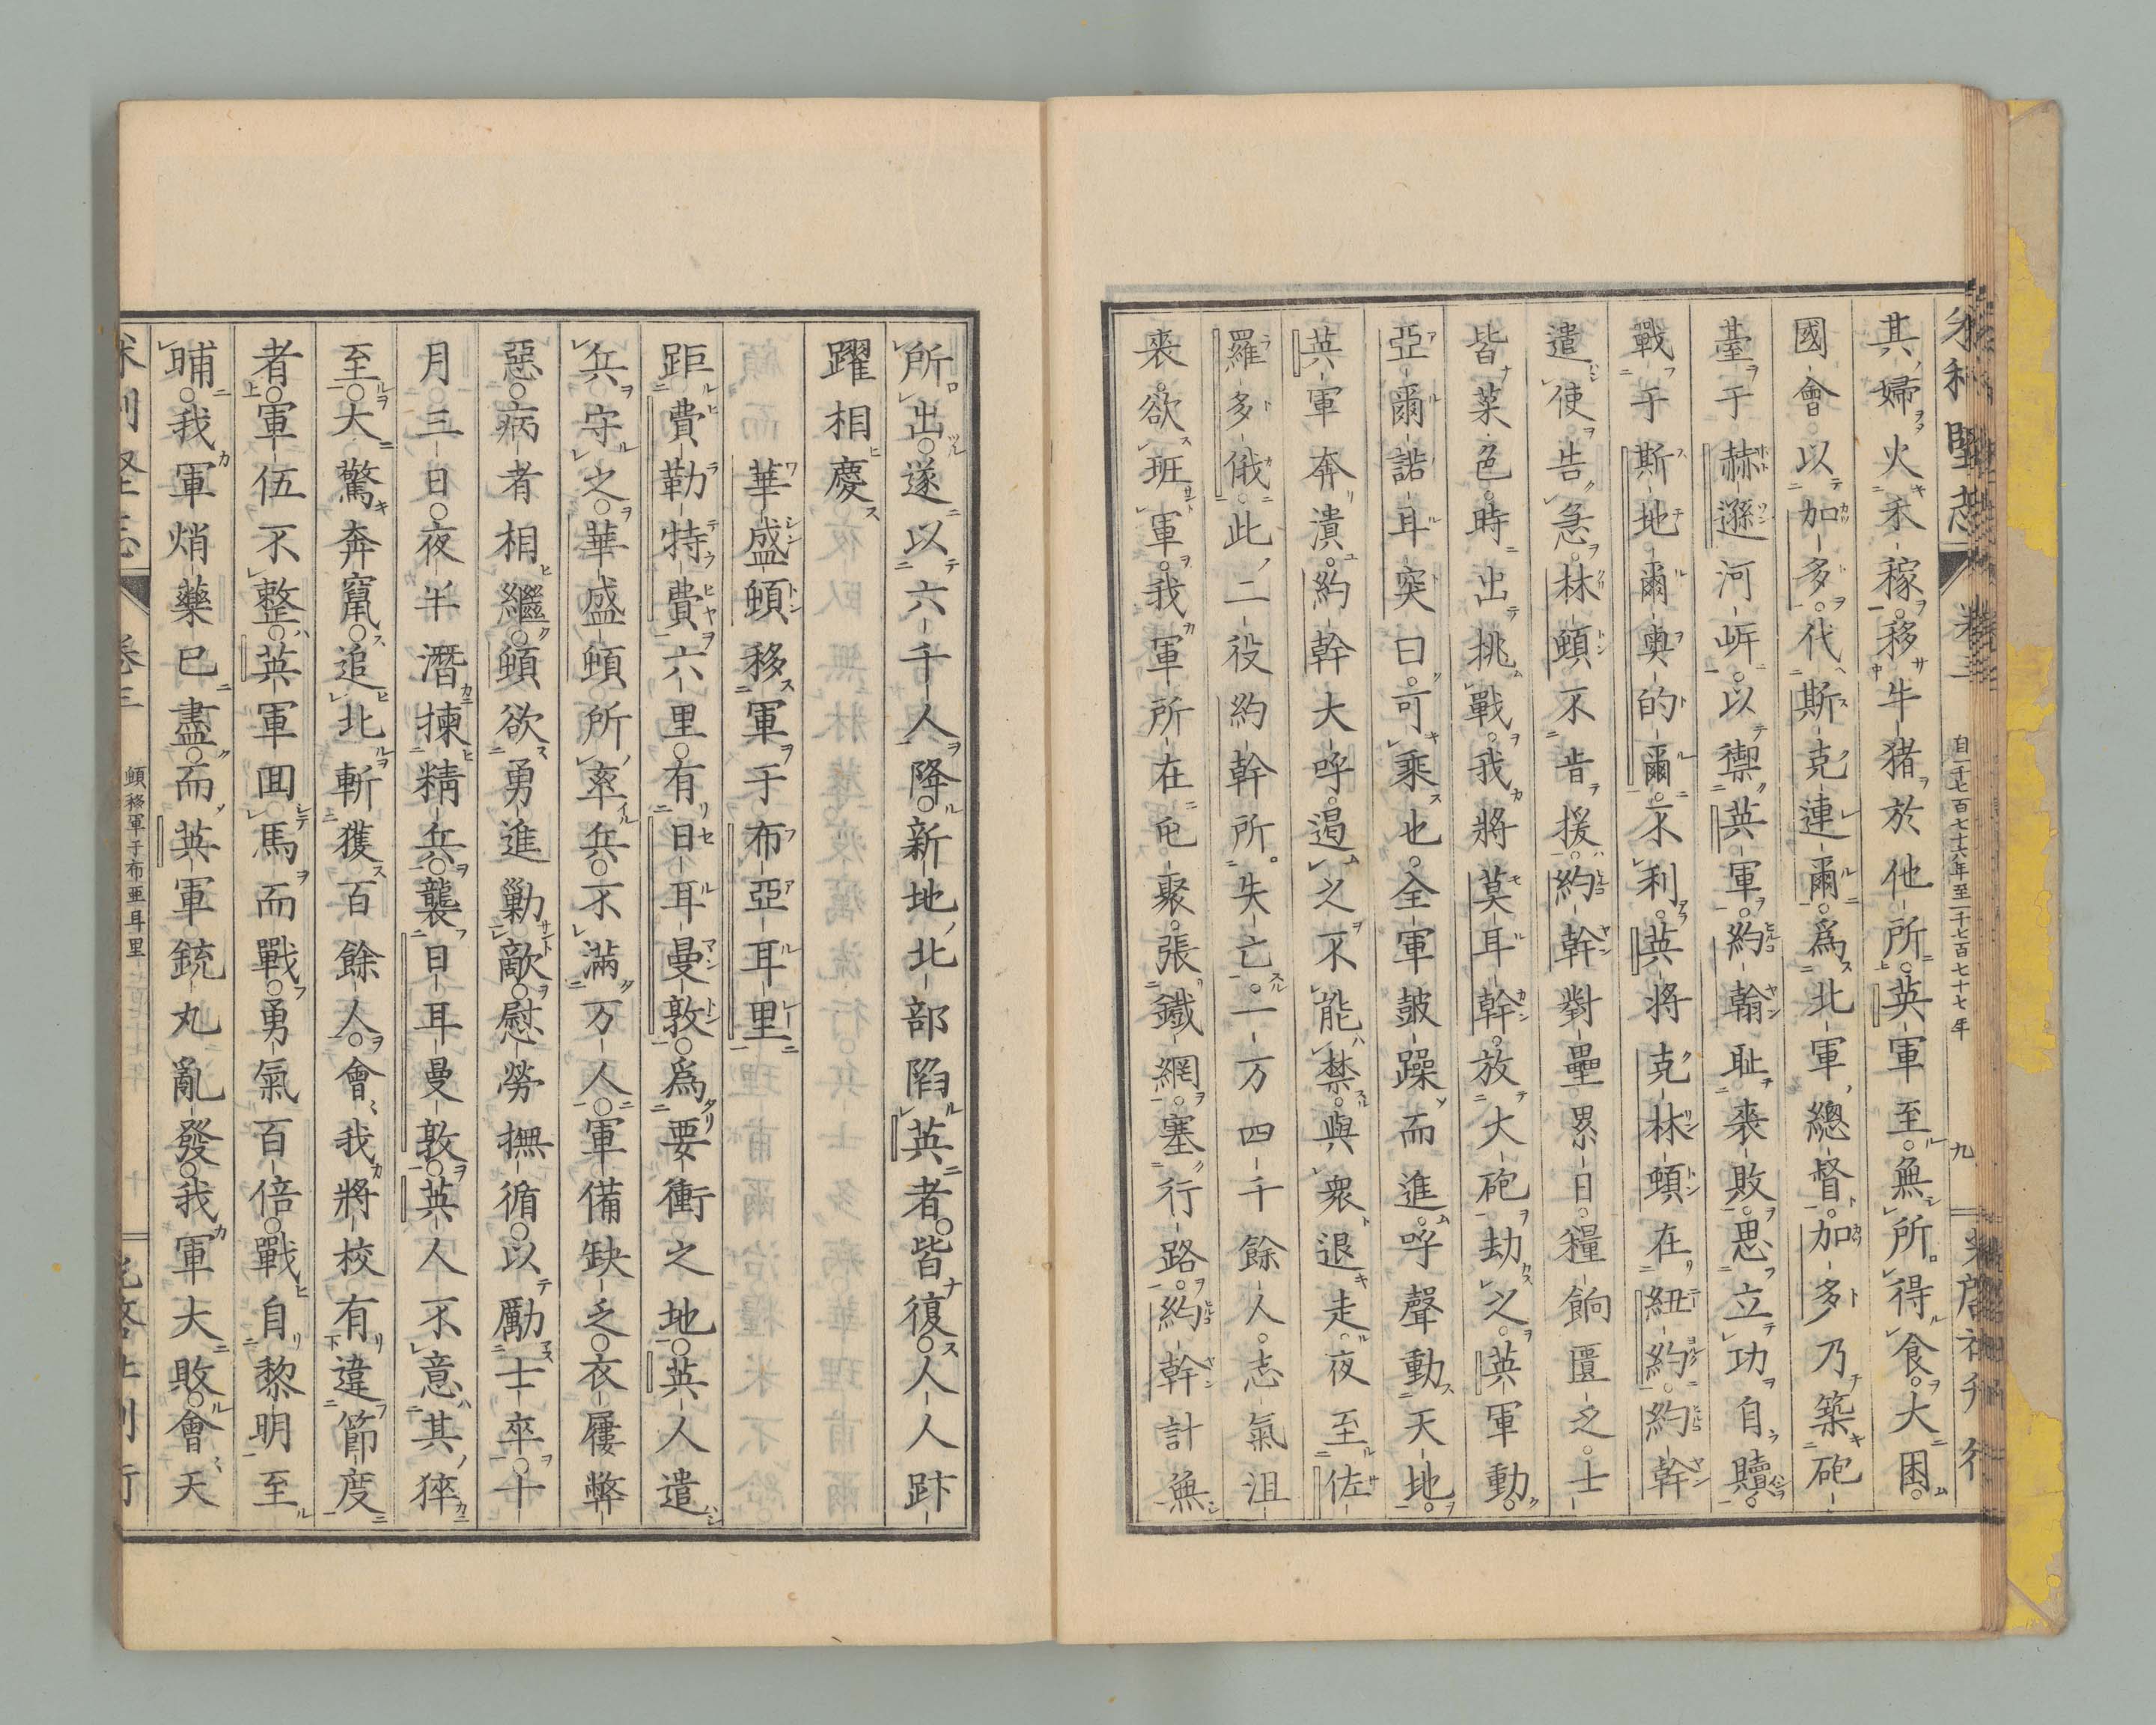 自一千七百七十六年至一千七百七十七年
九
其婦火禾稼移牛猪於他所英軍至無所得食大困
國會以加多代斯克連爾爲北軍總督加多乃築砲
臺于赫遜河岍以禦英軍約翰耻喪敗思立功自贖
戰于斯地爾奥的爾不利英將克林頓在紐約約幹
遣使告急林頓不肯援約幹對壘累日糧餉匱乏士
皆菜色時出挑戰我將莫耳幹放大砲劫之英軍動
亞爾諾耳突曰可乘也全軍鼓躁而進呼聲動天地
英軍奔潰約幹大呼遏之不能禁與衆退走夜至佐
羅多俄此二役約幹所失亡一万四千餘人志氣沮
喪欲班軍我軍所在屯聚張鐵網塞行路約幹計無
所出遂以六千人降新地北部陷英者皆復人人跡
躍相慶
華盛頓移軍于布亞耳里
距費勒特費六里有日耳曼敦爲要衝之地英人遣
兵守之華盛頓所率兵不滿万人軍備缺乏衣屨弊
惡病者相繼頓欲勇進勦敵慰勞撫循以勵士卒十
月三日夜半潛揀精兵襲日耳曼敦英人不意其猝
至大驚奔竄追北斬獲百餘人會我將校有違節度
者軍伍不整英軍回馬而戰勇氣百倍戰自黎明至
晡我軍焇藥已盡而英軍銃丸亂發我軍大敗會天
頓移軍于布亜耳里